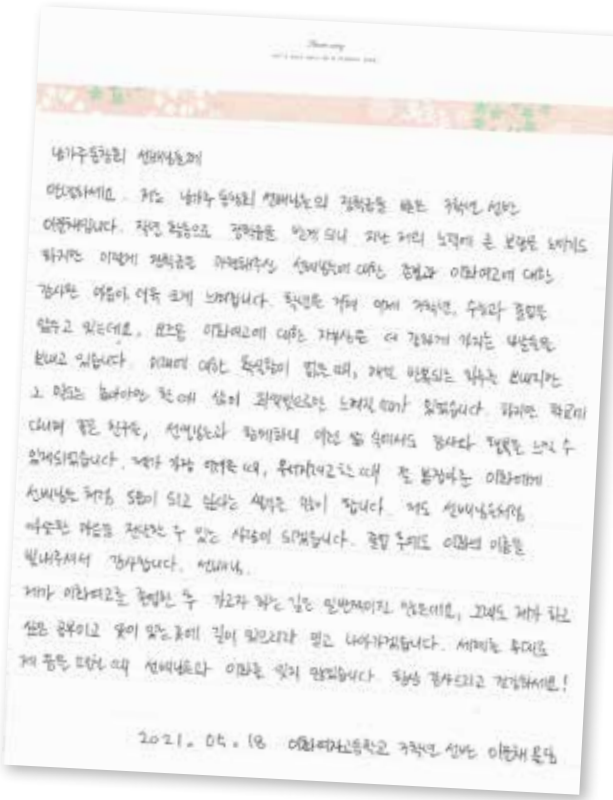 남가주동창회 선배님들께
안녕하세요. 저는 남가주 동창회 선배님들의 장학금을 받은 3학년 선반
입니다. 작년 장학금을 받게 되니 지난 저의 노력에 큰 보람을 느끼기도
하지만 이렇게 장학금을 마련해주신 선배님들에 대한 존경과 이화여고에 대한
감사한 마음이 더욱 크게 느껴집니다. 학년을 거쳐 어제 3학년, 수능과 졸업을
앞두고 있는데요, 요즈음 이화여고에 대한 자부심을 더 강하게 가지는 나날들을
보내고 있습니다. 미래에 대한 확신이 없을 때, 매일 반복되는 하루를 보내지만
그 않아야만 한 때 삶이 회색빛으로만 느껴진 때가 있었습니다. 하지만 학교에
다니며 좋은 친구들, 선생님들과 함께하니 이런 삶 속에서도 감사와 행복을 느낄 수
있게되었습니다. 제가 가장 어려울 때, 때 잘 이화에게
선배님들처럼 도움이 되고 싶다는 생각을 많이 합니다. 저도 선배님들처럼
따뜻한 마음을 전달할 수 있는 사람이 되겠습니다. 졸업 후에도 이화의 이름을
빛내주셔서 감사합니다. 선배님.
제가 이화여고를 졸업한 후 가고자 하는 길은 일반적이진 않은데요, 그래도 제가 하고
싶은 공부이고 뜻이 있는 곳에 길이 있으리라 믿고 나아가겠습니다. 세계를 무대로
제 꿈을 펼칠 때 선배님들과 이화를 잊지 않겠습니다. 항상 감사드리고 건강하세요!
2021. 05. 18 이화여자고등학교 3학년 선반 올림